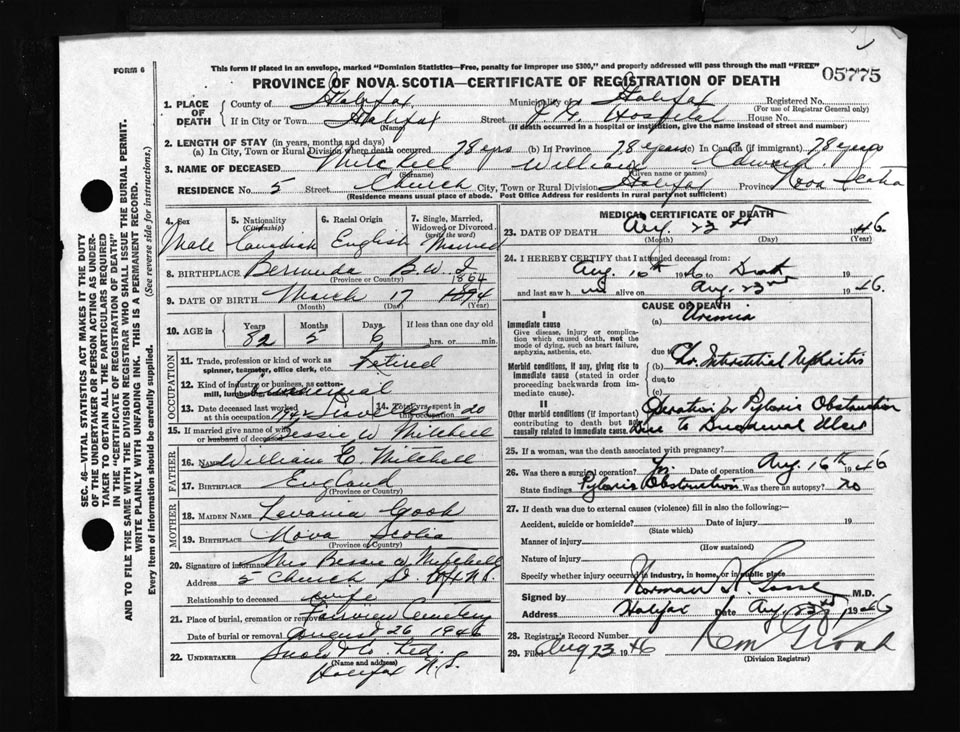 This form if placed in an envelope, marked "Dominion Statistics—Free, penalty for improper use $300," and properly addressed will pass through the mail "FREE"
FORM 6
PROVINCE OF NOVA SCOTIA—CERTIFICATE OF REGISTRATION OF DEATH 05775
1. PLACE OF DEATH County of Halifax Municipality of Halifax Registered No. (For use of Registrar General only)
If in City or Town Halifax (Name) Street Hospital House No.
(If death occurred in a hospital or institution, give the name instead of street and number)
2. LENGTH OF STAY (in years, months and days)
(a) In City, Town or Rural Division where death occurred 78 yrs (b) In Province 78 years (c) In Canada (if immigrant) 78 years
3. NAME OF DECEASED Mitchell William Edward
(Surname) (Given name or names)
RESIDENCE No. 5 Street Church City, Town or Rural Division Halifax Province Nova Scotia
(Residence means usual place of abode. Post Office Address for residents in rural parts not sufficient)
4. Sex Male
5. Nationality (Citizenship) Canadian
6. Racial Origin English
7. Single, Married, Widowed or Divorced (write the word) Married
8. BIRTHPLACE Bermuda B.W.I.
(Province or Country)
9. DATE OF BIRTH March 17 1864
(Month) (Day) (Year)
10. AGE in Years 82 Months 5 Days 6 If less than one day old hrs. or min.
OCCUPATION
11. Trade, profession or kind of work as spinner, teamster, office clerk, etc. Retired
12. Kind of industry or business, as cotton-mill, lumbering,
13. Date deceased last worked at this occupation
14. Total yrs. spent in this occupation 20
15. If married give name of wife or husband of deceased Bessie W Mitchell
FATHER
16. NAME William E. Mitchell
17. BIRTHPLACE England
(Province or Country)
MOTHER
18. MAIDEN NAME Levania Gook
19. BIRTHPLACE Nova Scotia
(Province or Country)
20. Signature of informant Mrs Bessie W Mitchell
Address 5 Church St Hfx N.S.
Relationship to deceased wife
21. Place of burial, cremation or removal Fairview Cemetery
Date of burial or removal August 26 1946
22. UNDERTAKER Snow & Co. Ltd.
(Name and address)
Halifax N.S.
MEDICAL CERTIFICATE OF DEATH
23. DATE OF DEATH Aug. 23rd 1946
(Month) (Day) (Year)
24. I HEREBY CERTIFY that I attended deceased from:
Aug 16th 1946 to Death 19
and last saw him alive on Aug. 23rd 1946.
CAUSE OF DEATH
I
Immediate cause (a) Uremia
Give disease, injury or complication which caused death, not the mode of dying, such as heart failure, asphyxia, asthenia, etc.
due to
Morbid conditions, if any, giving rise to immediate cause (stated in order proceeding backwards from immediate cause). (b) Chr. Interstitial Nephritis
due to
(c)
II
Other morbid conditions (if important) contributing to death but not causally related to immediate cause. Operation for Pyloric Obstruction
Due to Duodenal Ulcer
25. If a woman, was the death associated with pregnancy?
26. Was there a surgical operation? Yes. Date of operation Aug. 16th 1946
State findings Pyloric Obstruction Was there an autopsy? no
27. If death was due to external causes (violence) fill in also the following:—
Accident, suicide or homicide? Date of injury 19
(State which)
Manner of injury
(How sustained)
Nature of injury
Specify whether injury occurred in industry, in home, or in public place
Signed by Norman H. Gosse M.D.
Address Halifax Date Aug 23rd 1946
28. Registrar's Record Number
29. Filed Aug 23 1946
(Division Registrar)
SEC. 46—VITAL STATISTICS ACT MAKES IT THE DUTY
OF THE UNDERTAKER OR PERSON ACTING AS UNDER-
TAKER TO OBTAIN ALL THE PARTICULARS REQUIRED
IN THE "CERTIFICATE OF REGISTRATION OF DEATH"
AND TO FILE THE SAME WITH THE DIVISION REGISTRAR WHO SHALL ISSUE THE BURIAL PERMIT.
WRITE PLAINLY WITH UNFADING INK. THIS IS A PERMANENT RECORD.
Every item of information should be carefully supplied. (See reverse side for instructions.)